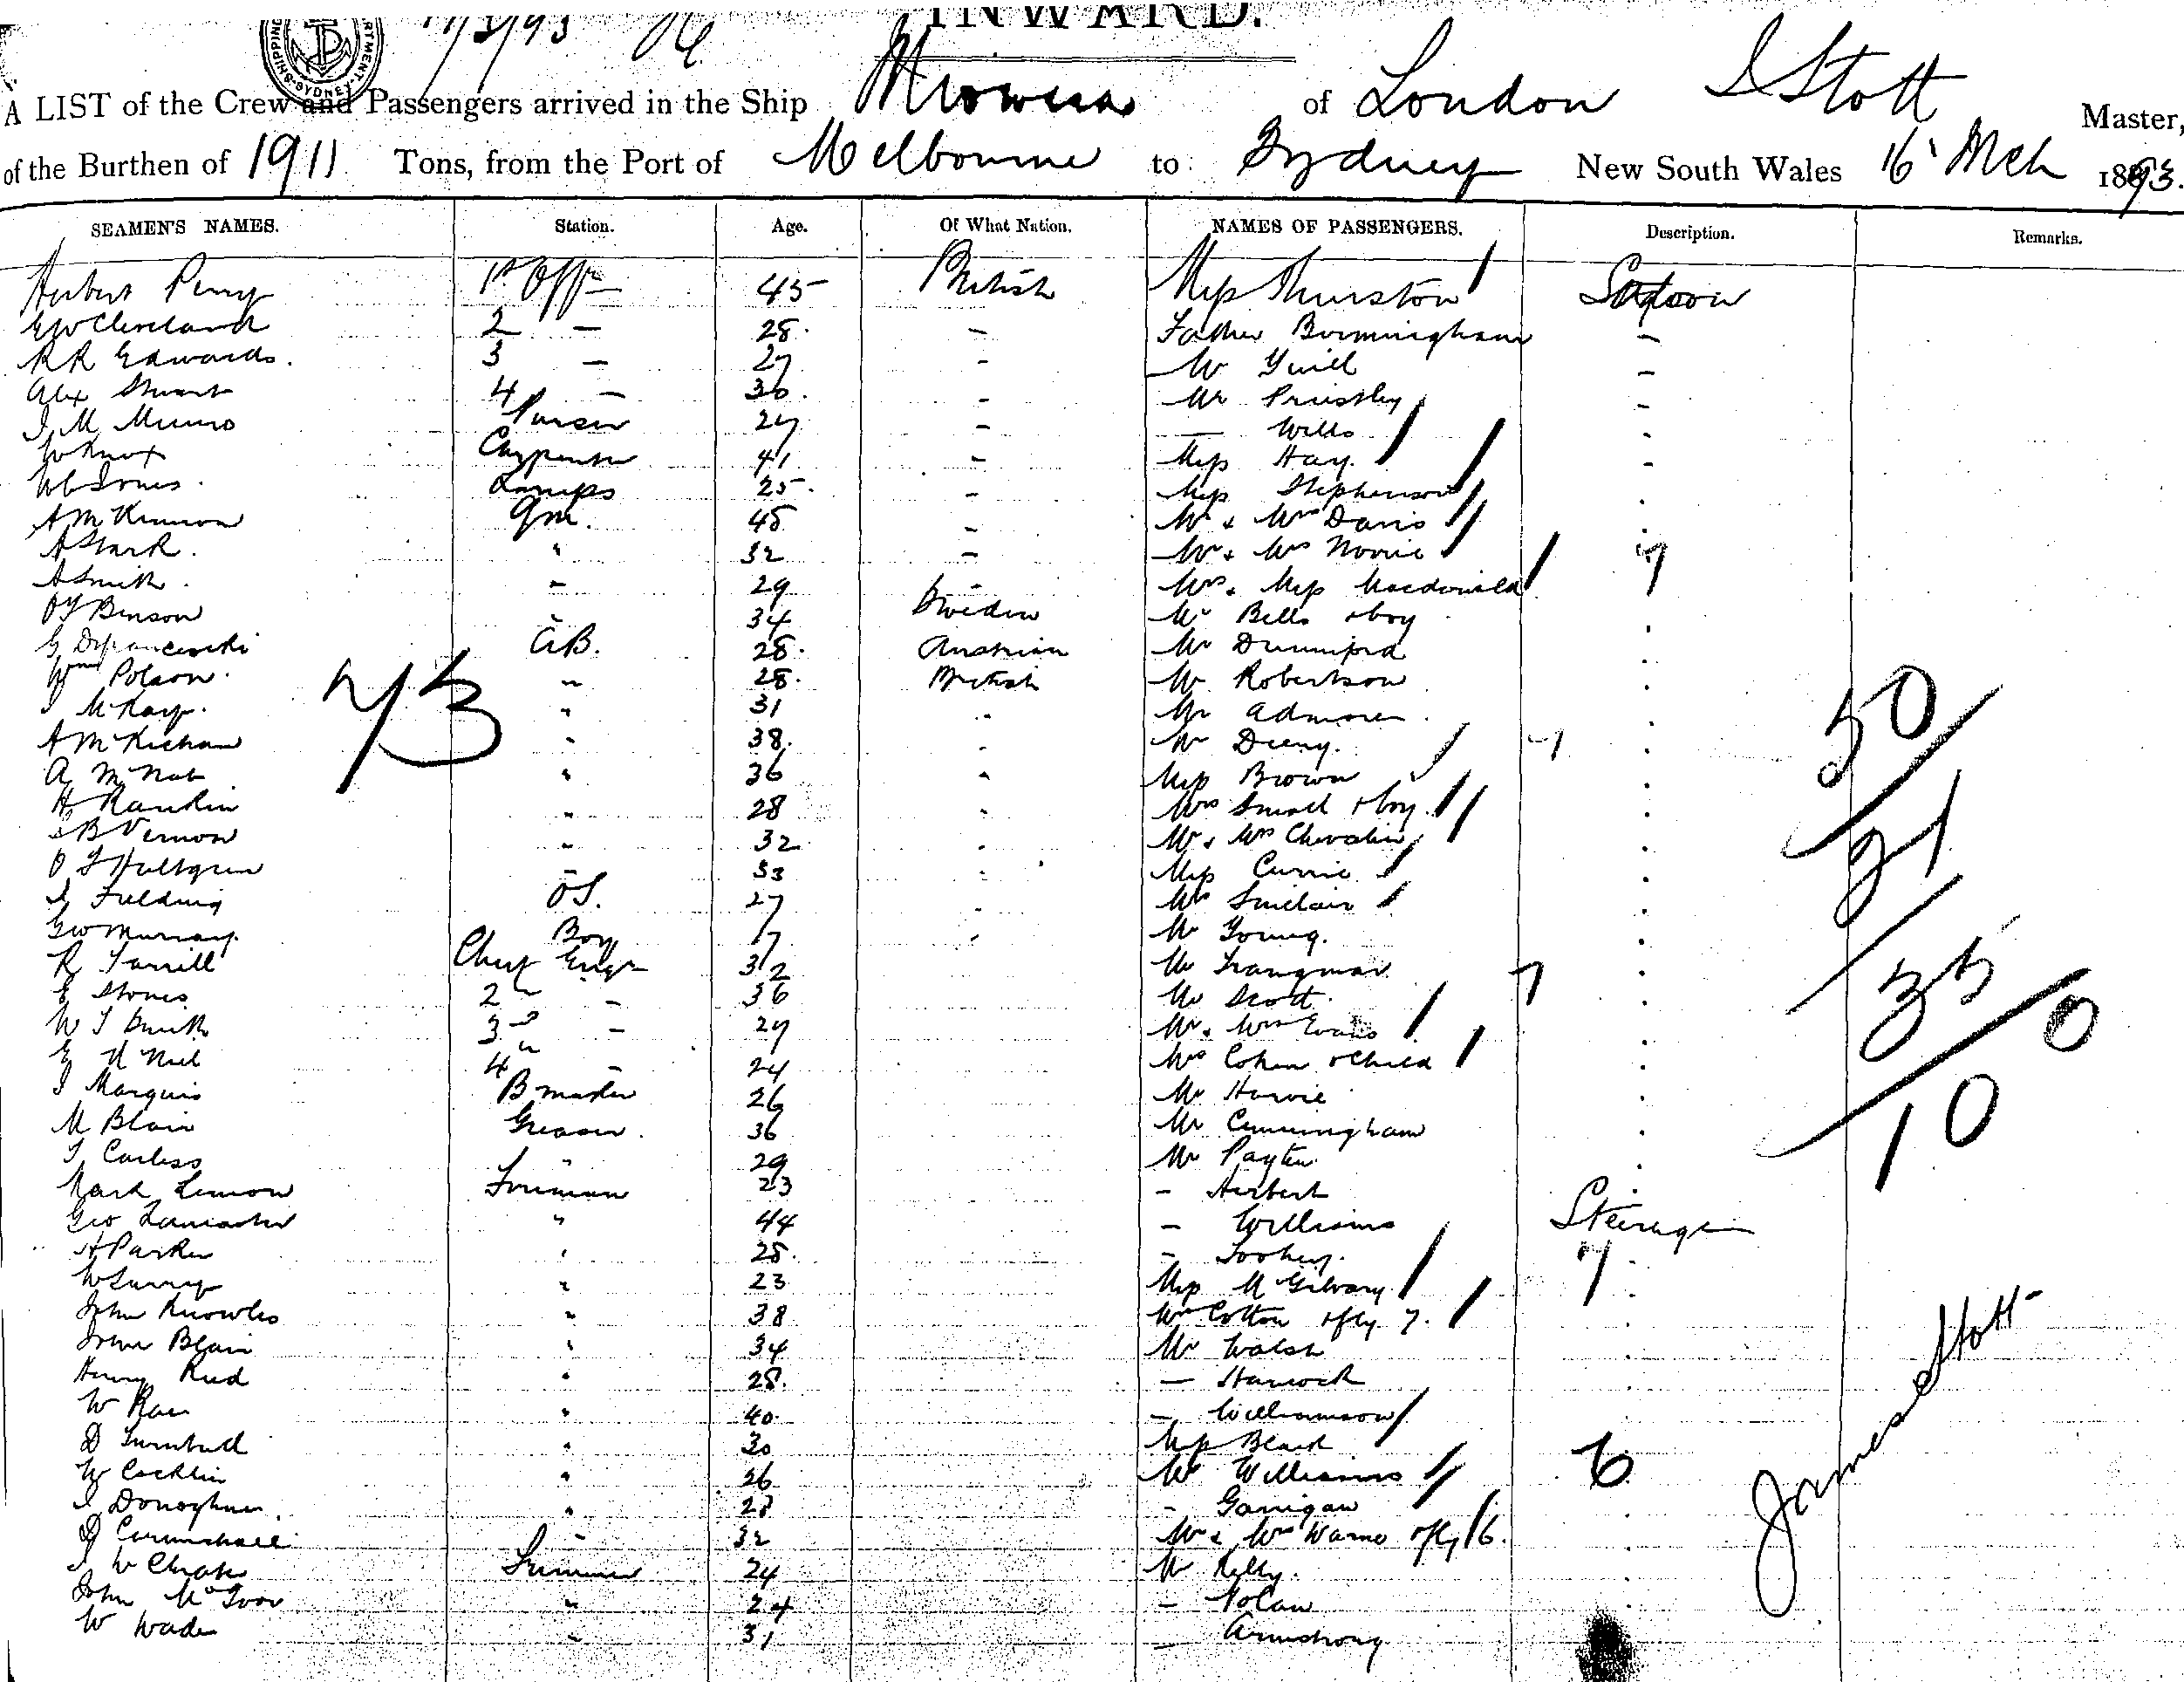 17/3/93
INWARD.
A LIST of the Crew and Passengers arrived in the Ship Miowera of London J Stott Master,
of the Burthen of 1911 Tons, from the Port of Melbourne to Sydney New South Wales 16 Mch 1893.
SEAMEN'S NAMES. Station. Age. Of What Nation. NAMES OF PASSENGERS. Description. Remarks.
Herbert Perry 1st Offr 45 British Miss Thurston Saloon
Cleveland 2 — 28. — Father Birmingham —
R R Edwards. 3 — 27 — Mr Guill —
Alex Stuart 4 — 30. — Mr Priestley —
J M Munro Purser 27 — — Wills
W Knox Carpenter 41 — Miss Hay. —
Jones. Lamps 25. — Miss Stephenson
A McKinnon Qm. 45 — Mr & Mrs Davis
A Stark. " 32 — Mr & Mrs Norrie
A Smith. — 29 — Mrs & Miss Macdonald
Benson 34 Sweden Mr Bells & boy
G AB. 28. Austrian Mr Dunnford
Wm Polson. " 28. British Mr Robertson
J McKay. " 31 Mr
A McKichan " 38. Mr Deeny.
A McNab " 36 Miss Brown
H Rankin " 28 Mrs Small & boy.
B Vernon " 32 Mr & Mrs Chevalier
O F Hultgren 33 Miss Currie
J Fielding OS. 27 Mrs Sinclair
Geo Murray. Boy 17 Mr Young.
R Tarrill Chief Engr 32 Mr Trangmar
E Stones 2nd — 36 Mr Scott.
W J Smith 3rd — 27 Mr & Mrs Evans
E McNeil 4th — 24 Mrs Cohen & Child
J Marquis B master 26 Mr Harvie
M Blair Greaser. 36 Mr Cunningham
J Carless " 29 Mr Payten
Mark Lemon Fireman 23 — Herbert
Geo Lancaster " 44 — Williams Steerage
H Parker " 28. — Toohey.
W " 23 Miss McGilvary
John Knowles " 38 Mrs Cotton & fly 7.
John Blair " 34 Mr Walsh
Henry Reid " 28. — Hancock
W Rae " 40. — Williamson
D Turnbull " 30 Miss Black
W Cocklin " 26 Mr Williams
J Donoghue " 27 — Garrigan
D 32 Mr & Mrs Warne & fly 6.
J W Trimmer 24 Mr Kelly.
John McIvor " 24 — Nolan
W Wade " 31 — Armstrong
73
50
21
35 0
10
James Stott